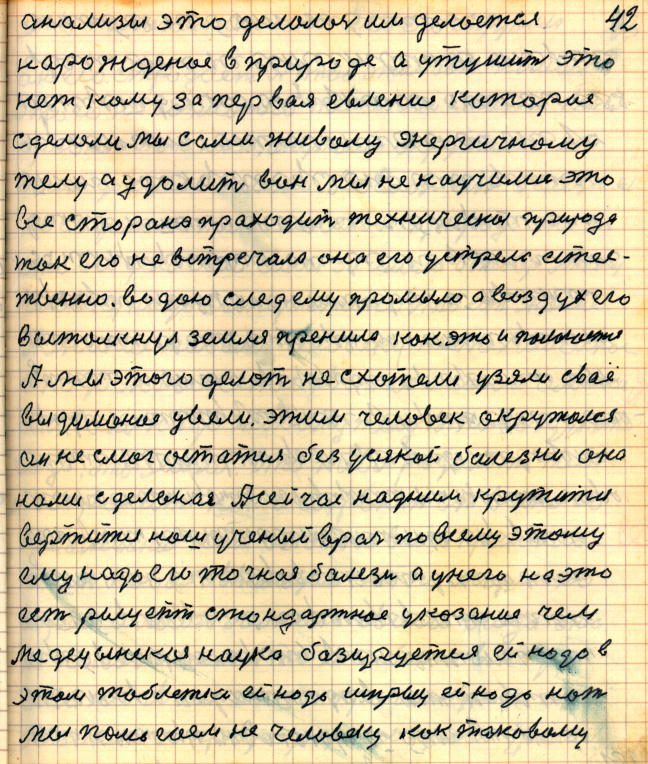 анализы это делалоч или делоется 42
нарожденое в природе а утушит это
нет кому за первая евления которое
сделоли мы сами живому энергичному
телу а удолит вон мы не научими это
все сторана праходит техническоя природа
так его не встречало она его устрела стес-
твенно. водою след ему промыло а воздух его
вытолкнул земля пренила как это и
А мы этого делот не схотели узяли сваё
выдуманое увели. этим человек окружолся
он не смог остатия без усякой балезни она
нами сделоная А сейчас надним крутитя
вертитя наш ученый врач по всему этому
ему надо его точная балезн а унего на это
ест рецепт стондартное указание чем
медецынскоя наука базируется ей нодо в
этом таблетки ей нодо шприц ей нодо нож
мы помогоем не человеку как таковому